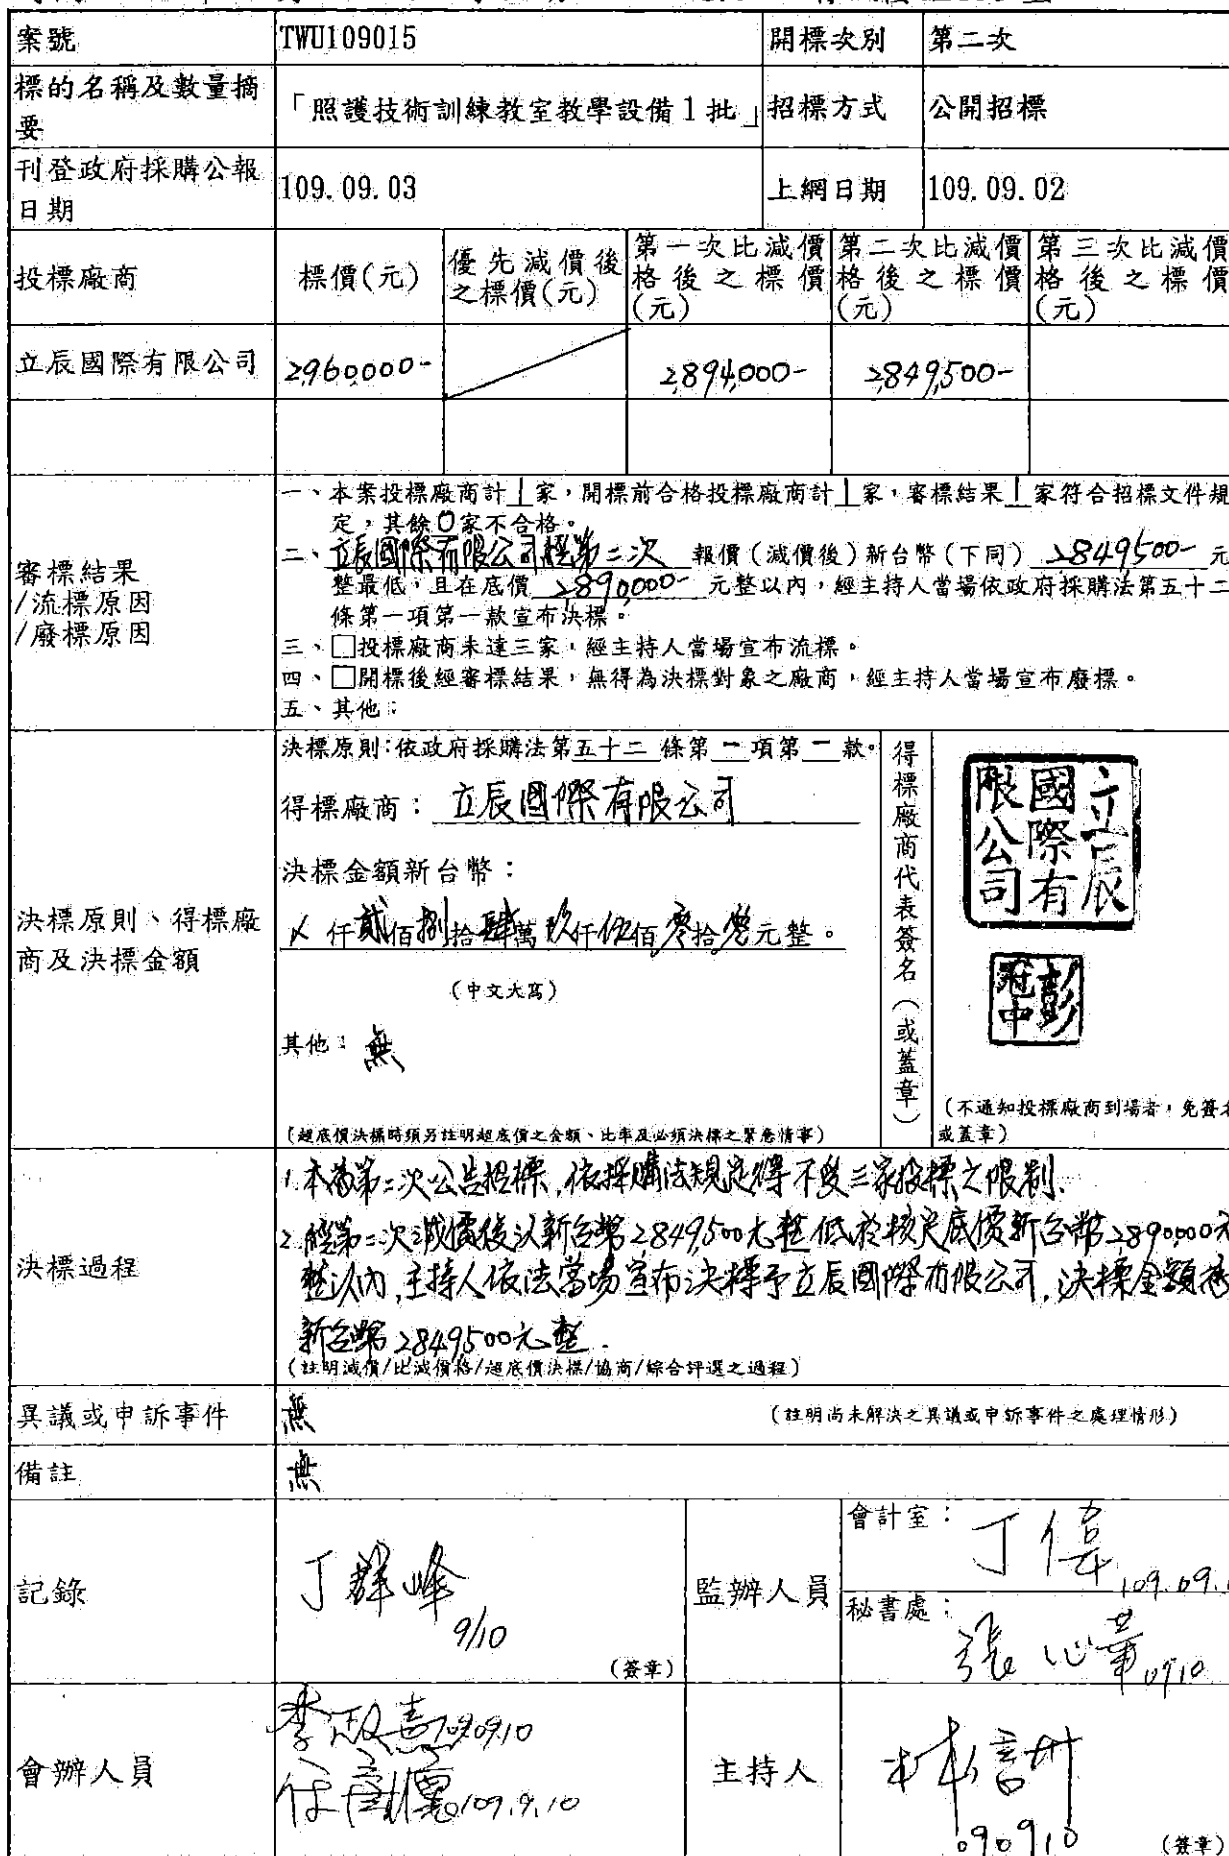 案號 TWU109015 開標次別 第二次
標的名稱及數量摘要 「照護技術訓練教室教學設備1批」 招標方式 公開招標
刊登政府採購公報日期 109.09.03 上網日期 109.09.02
投標廠商 標價(元) 優先減價後之標價(元) 第一次比減價格後之標價(元) 第二次比減價格後之標價(元) 第三次比減價格後之標價(元)
立辰國際有限公司 2,960,000- 2,894,000- 2,849,500-
審標結果
/流標原因
/廢標原因
一、本案投標廠商計1家,開標前合格投標廠商計1家,審標結果1家符合招標文件規
定,其餘0家不合格。
二、立辰國際有限公司經第二次 報價(減價後)新台幣(下同) 2,849,500- 元
整最低,且在底價 2,890,000- 元整以內,經主持人當場依政府採購法第五十二
條第一項第一款宣布決標。
三、□投標廠商未達三家,經主持人當場宣布流標。
四、□開標後經審標結果,無得為決標對象之廠商,經主持人當場宣布廢標。
五、其他:
決標原則、得標廠商及決標金額
決標原則:依政府採購法第五十二條第一項第一款。
得標廠商:立辰國際有限公司
決標金額新台幣:
㐅仟貳佰捌拾肆萬玖仟伍佰零拾零元整。
(中文大寫)
其他:無
(超底價決標時須另註明超底價之金額、比率及必須決標之緊急情事)
得標廠商代表簽名(或蓋章)
立辰
國際有
限公司
彭
冠中
(不通知投標廠商到場者,免簽名
或蓋章)
決標過程
1. 本為第二次公告招標,依採購法規定得不受三家投標之限制.
2. 經第二次減價後以新台幣2,849,500元整低於核定底價新台幣2,890,000元
整以內,主持人依法當場宣布決標予立辰國際有限公司,決標金額為
新台幣2,849,500元整.
(註明減價/比減價格/超底價決標/協商/綜合評選之過程)
異議或申訴事件 無 (註明尚未解決之異議或申訴事件之處理情形)
備註 無
記錄 丁群峰 9/10 (簽章)
監辦人員
會計室: 丁偉 109.09.
秘書處: 張心華 0910
會辦人員
1090910
109.9.10
主持人 090910 (簽章)